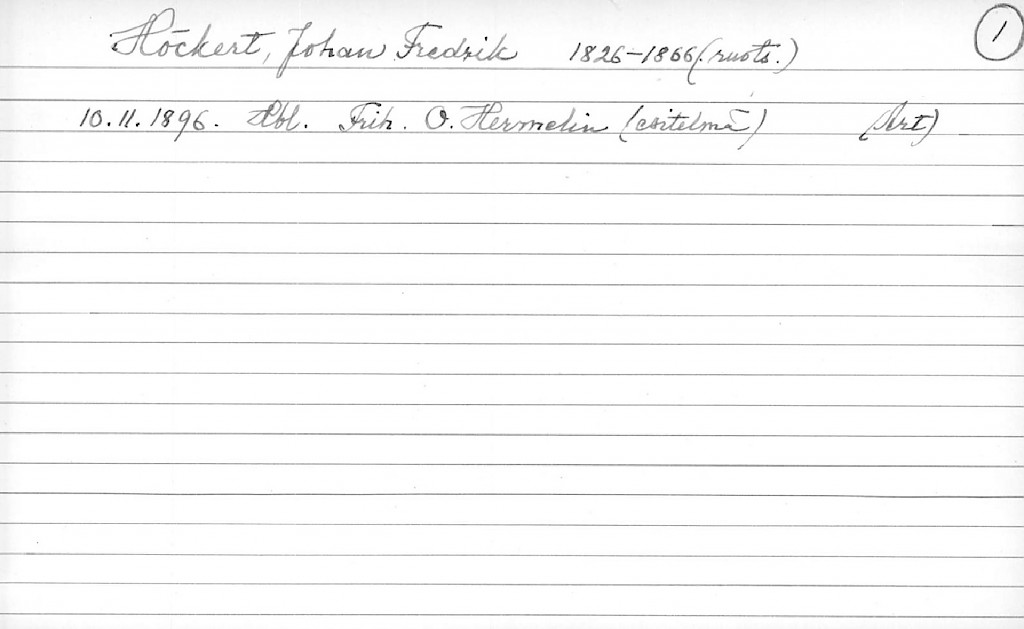 Höckert, Johan Fredrik 1826-1866 (ruots.) 1
10.11.1896. Hbl. Frih. O. Hermelin (esitelmä) (Art)